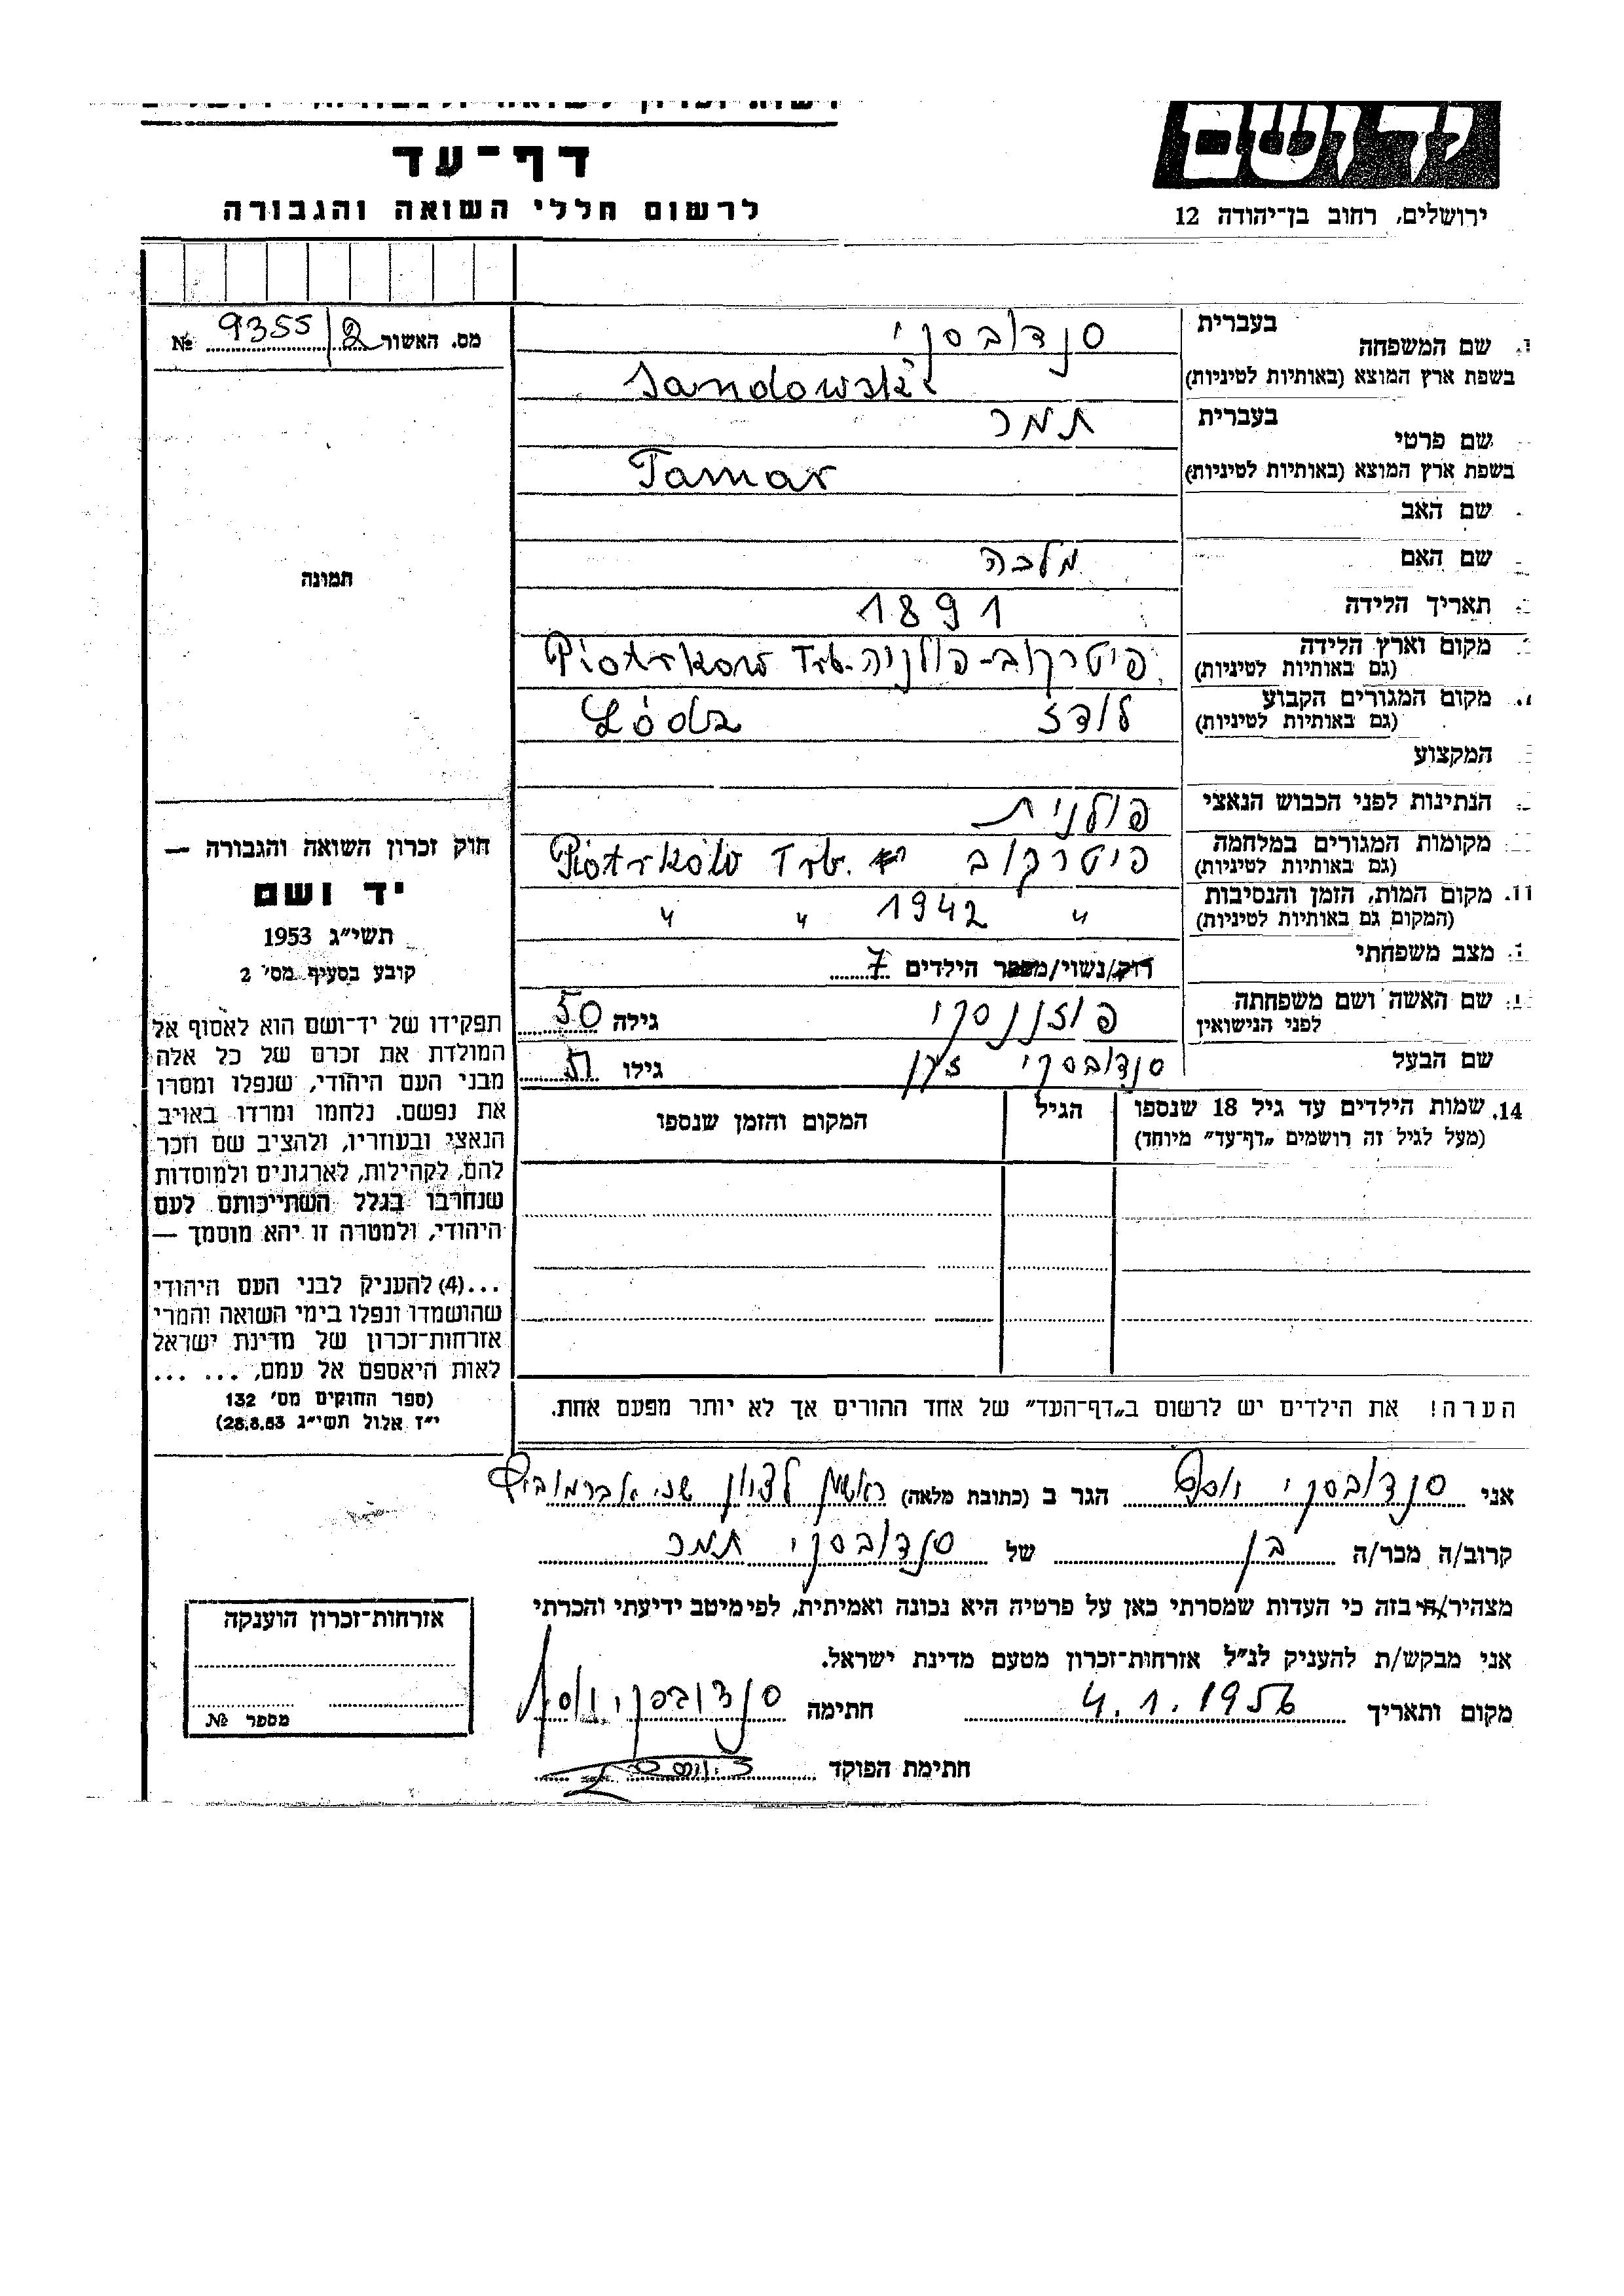 יד ושם
ירושלים, רחוב בן־יהודה 12
דף־עד
לרשום חללי השואה והגבורה
מס. האשור 9355/ №
תמונה
חוק זכרון השואה והגבורה —
יד ושם
תשי״ג 1953
קובע בסעיף מס׳ 2
תפקידו של יד־ושם הוא לאסוף אל
המולדת את זכרם של כל אלה
מבני העם היהודי, שנפלו ומסרו
את נפשם. נלחמו ומרדו באויב
הנאצי ובעוזריו, ולהציב שם וזכר
להם, לקהילות, לארגונים ולמוסדות
שנחרבו בגלל השתייכותם לעם
היהודי, ולמטרה זו יהא מוסמך —
...(4) להעניק לבני העם היהודי
שהושמדו ונפלו בימי השואה והמרי
אזרחות־זכרון של מדינת ישראל
לאות היאספם אל עמם, ... ...
(ספר החוקים מס׳ 132
י״ז אלול תשי״ג 28.8.53)
בעברית סנדובסקי
שם המשפחה
בשפת ארץ המוצא (באותיות לטיניות) Sandowski
בעברית תמר
שם פרטי
בשפת ארץ המוצא (באותיות לטיניות) Tamar
שם האב
שם האם מלכה
תאריך הלידה 1891
מקום וארץ הלידה פיטרקוב-פולניה Piotrkow Trb.
(גם באותיות לטיניות)
מקום המגורים הקבוע לודז Łódz
(גם באותיות לטיניות)
המקצוע
הנתינות לפני הכבוש הנאצי פולנית
מקומות המגורים במלחמה פיטרקוב Piotrków Trb.
(גם באותיות לטיניות)
11. מקום המות, הזמן והנסיבות " 1942 " "
(המקום גם באותיות לטיניות)
מצב משפחתי רוק/נשוי/מספר הילדים 7
שם האשה ושם משפחתה פוזננסקי גילה 50
לפני הנישואין
שם הבעל סנדובסקי גילו 51
14. שמות הילדים עד גיל 18 שנספו הגיל המקום והזמן שנספו
(מעל לגיל זה רושמים „דף־עד״ מיוחד)
הערה! את הילדים יש לרשום ב„דף־העד״ של אחד ההורים אך לא יותר מפעם אחת.
אני סנדובסקי יוסף הגר ב (כתובת מלאה) ראשון לציון
קרוב/ה מכר/ה בן של סנדובסקי תמר
מצהיר/ה בזה כי העדות שמסרתי כאן על פרטיה היא נכונה ואמיתית, לפי מיטב ידיעתי והכרתי
אני מבקש/ת להעניק לנ״ל אזרחות־זכרון מטעם מדינת ישראל.
מקום ותאריך 4.1.1956 חתימה סנדובסקי יוסף
חתימת הפוקד
אזרחות־זכרון הוענקה
מספר №